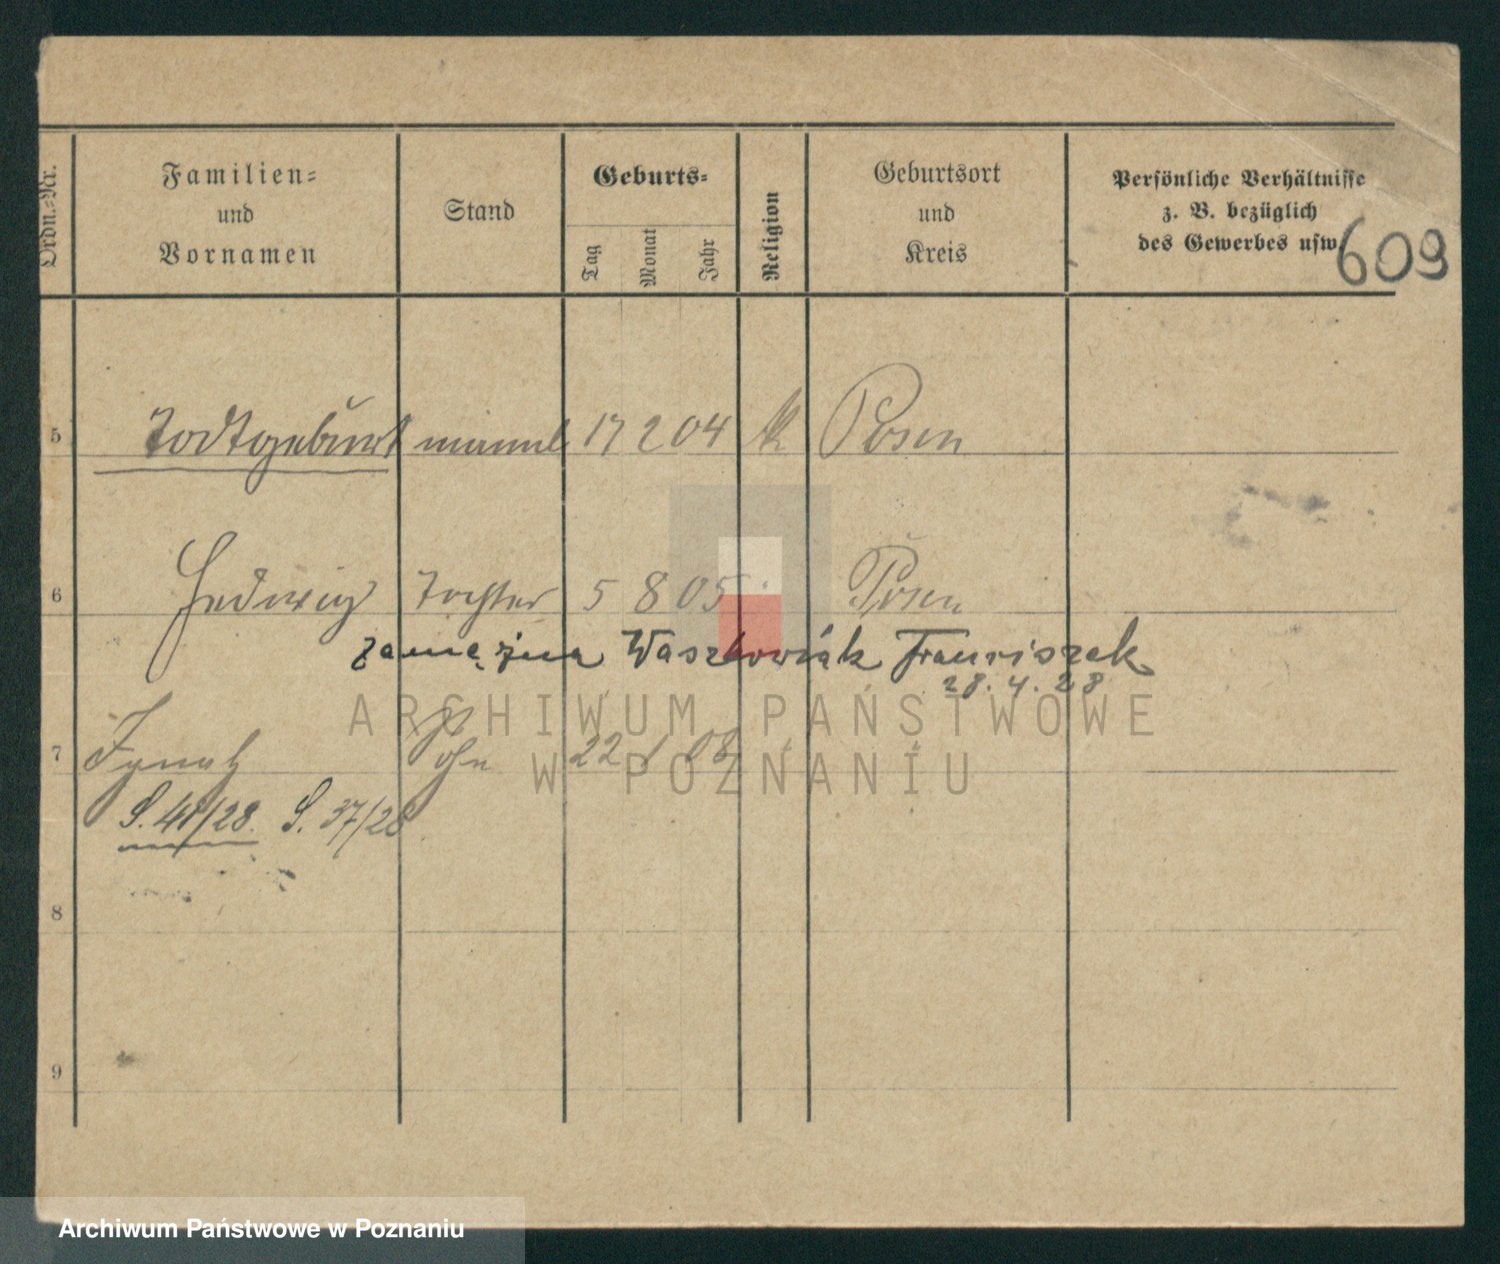 Ordn.=Nr.
Familien=
und
Vornamen
Stand
Geburts=
Tag
Monat
Jahr
Religion
Geburtsort
und
Kreis
Persönliche Verhältnisse
z. B. bezüglich
des Gewerbes usw.
609
5 Todtgeburt männl 17 2 04 k Posen
6 Hedwig Tochter 5 8 05 Posen
zamężna Waszkowiak Franciszek
28.4.28
7 Ignatz Sohn 22 1 08
S. 41/28. S. 37/28
8
9
ARCHIWUM PAŃSTWOWE
W POZNANIU
Archiwum Państwowe w Poznaniu